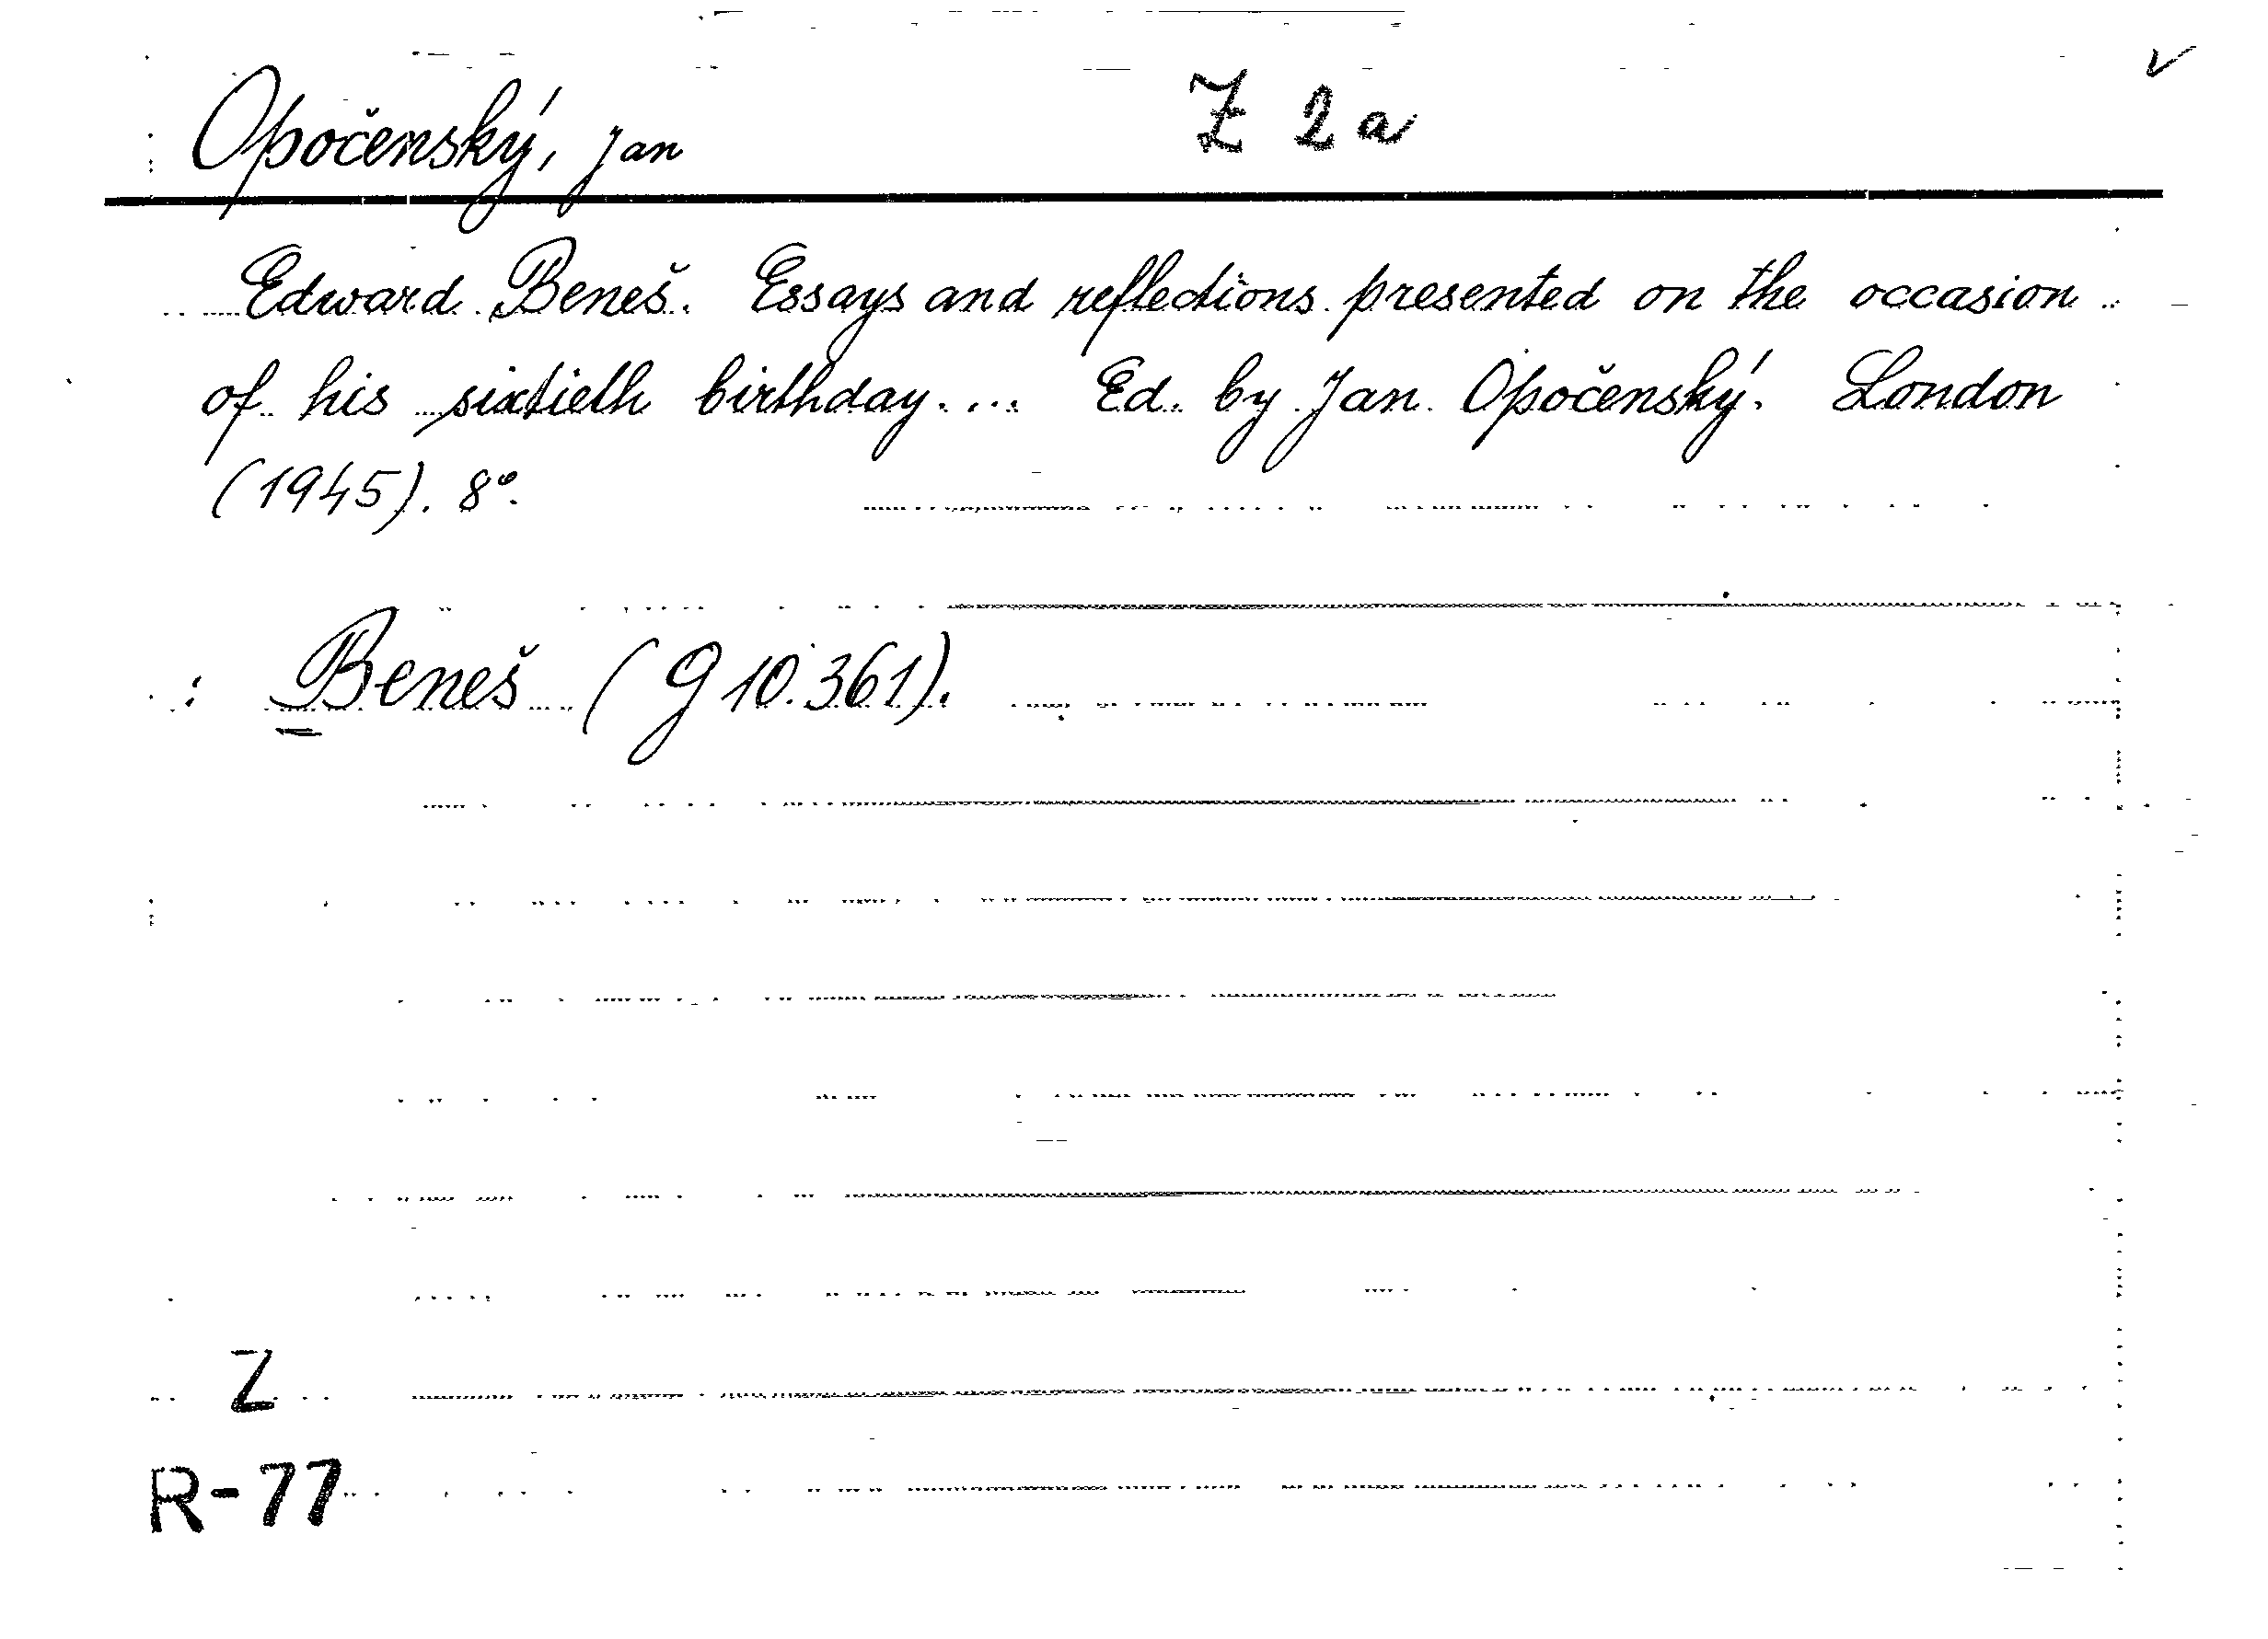 Opočenský, Jan Z 2a
Edward Beneš. Essays and reflections presented on the occasion
of his sixtieth birthday.... Ed. by Jan Opočenský. London
(1945). 8°.
: Beneš (G 10.361).
Z
R-77